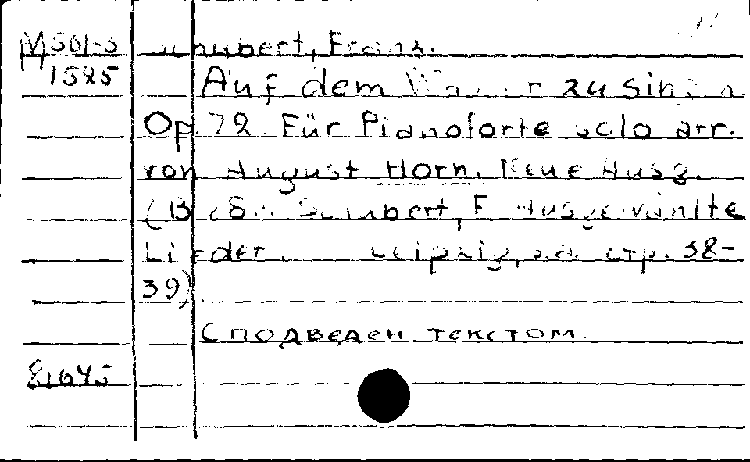 M501-3 Schubert, Franz.
1585 Auf dem Wasser zu singen
Op. 72. Für Pianoforte solo arr.
von August Horn. Neue Ausg.
(В Schubert, F. Ausgewählte
Lieder. Leipzig, стр. 38-
39)
С подведен. текстом.
81645